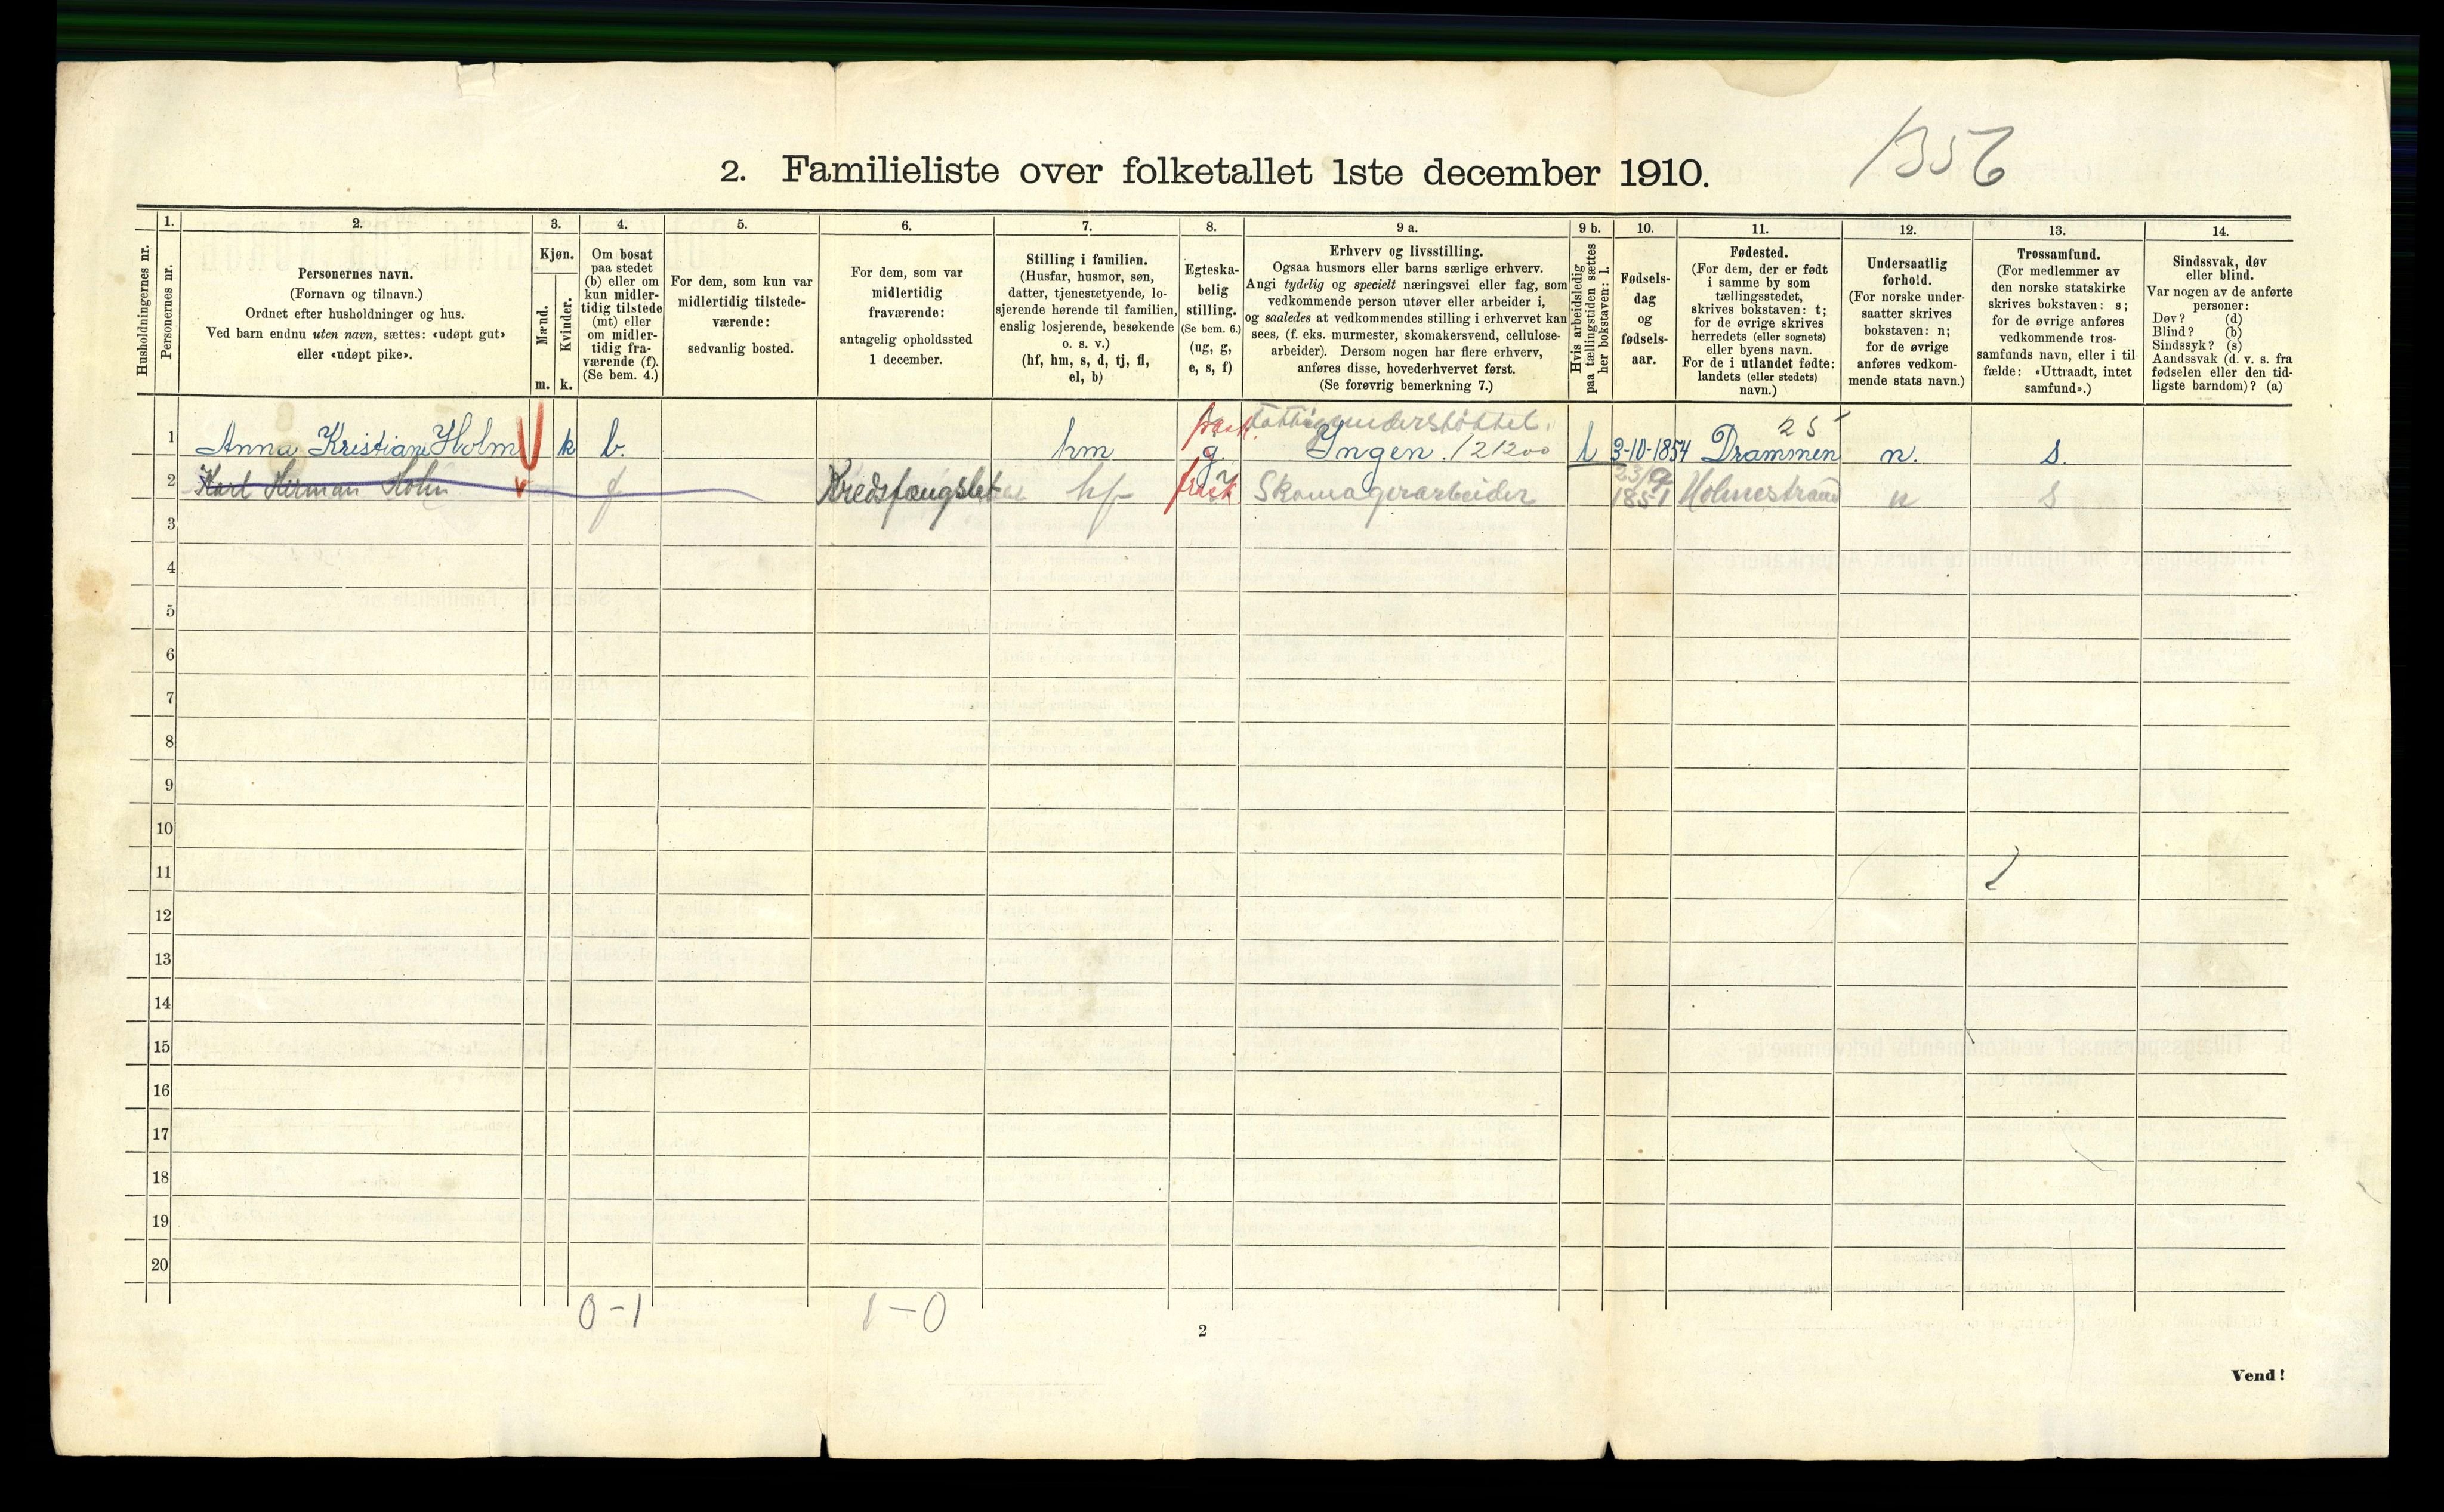 1356
2. Familieliste over folketallet 1ste december 1910.
Husholdningernes nr.
1.
Personernes nr.
2.
Personernes navn.
(Fornavn og tilnavn.)
Ordnet efter husholdninger og hus.
Ved barn endnu uten navn, sættes: «udøpt gut»
eller «udøpt pike».
3.
Kjøn.
Mænd.
m.
Kvinder.
k.
4.
Om bosat
paa stedet
(b) eller om
kun midler-
tidig tilstede
(mt) eller
om midler-
tidig fra-
værende (f).
(Se bem. 4.)
5.
For dem, som kun var
midlertidig tilstede-
værende:
sedvanlig bosted.
6.
For dem, som var
midlertidig
fraværende:
antagelig opholdssted
1 december.
7.
Stilling i familien.
(Husfar, husmor, søn,
datter, tjenestetyende, lo-
sjerende hørende til familien,
enslig losjerende, besøkende
o. s. v.)
(hf, hm, s, d, tj, fl,
el, b)
8.
Egteska-
belig
stilling.
(Se bem. 6.)
(ug, g,
e, s, f)
9 a.
Erhverv og livsstilling.
Ogsaa husmors eller barns særlige erhverv.
Angi tydelig og specielt næringsvei eller fag, som
vedkommende person utøver eller arbeider i,
og saaledes at vedkommendes stilling i erhvervet kan
sees, (f. eks. murmester, skomakersvend, cellulose-
arbeider). Dersom nogen har flere erhverv,
anføres disse, hovederhvervet først.
(Se forøvrig bemerkning 7.)
9 b.
Hvis arbeidsledig
paa tællingstiden sættes
her bokstaven: l.
10.
Fødsels-
dag
og
fødsels-
aar.
11.
Fødested.
(For dem, der er født
i samme by som
tællingsstedet,
skrives bokstaven: t;
for de øvrige skrives
herredets (eller sognets)
eller byens navn.
For de i utlandet fødte:
landets (eller stedets)
navn.)
12.
Undersaatlig
forhold.
(For norske under-
saatter skrives
bokstaven: n;
for de øvrige
anføres vedkom-
mende stats navn.)
13.
Trossamfund.
(For medlemmer av
den norske statskirke
skrives bokstaven: s;
for de øvrige anføres
vedkommende tros-
samfunds navn, eller i til-
fælde: «Uttraadt, intet
samfund».)
14.
Sindssvak, døv
eller blind.
Var nogen av de anførte
personer:
Døv? (d)
Blind? (b)
Sindssyk? (s)
Aandssvak (d. v. s. fra
fødselen eller den tid-
ligste barndom)? (a)
fattigunderstøttet. 25
1 Anna Kristiane Holm k b. hm g. Ingen. 121200 l 3-10-1854 Drammen n. s.
2 Karl Herman Holm f Kredsfængslet hf Skomagerarbeider 23/9 1851 Holmestrand n s
3
4
5
6
7
8
9
10
11
12
13
14
15
16
17
18
19
20
0-1 1-0
2
Vend!